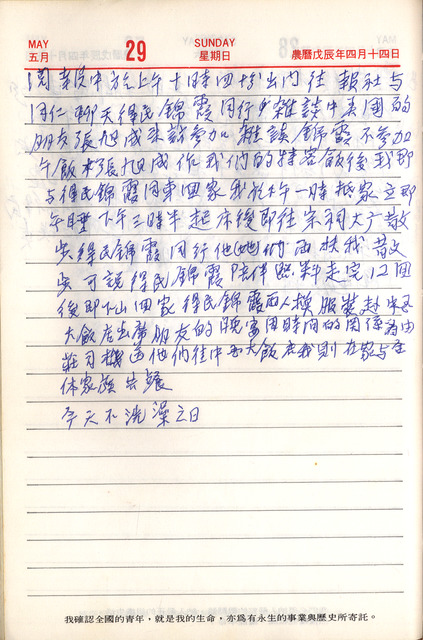 MAY
五月
29
SUNDAY
星期日
農曆戊辰年四月十四日
閱報中於上午十時四十分出門往報社與
同仁聊天得民錦霞同行雜談中美國的
朋友張旭成來訪參加雜談錦霞不參加
午飯張旭成作我們的特客飯後我即
與得民錦霞同車回家我於下午一時抵家立即
午睡下午三時半起床後即往宋祠大廣散
步得民錦霞同行他(她)們面扶我散
步可說得民錦霞陪伴照料走完12回
後即下山回家得民錦霞兩人換服裝赴中
大飯店出席朋友的晚宴因時間的關係為由
莊司機送他們往中大飯店我則在家與全
體家族共餐
今天不洗澡之日
我確認全國的青年，就是我的生命，亦爲有永生的事業與歷史所寄託。